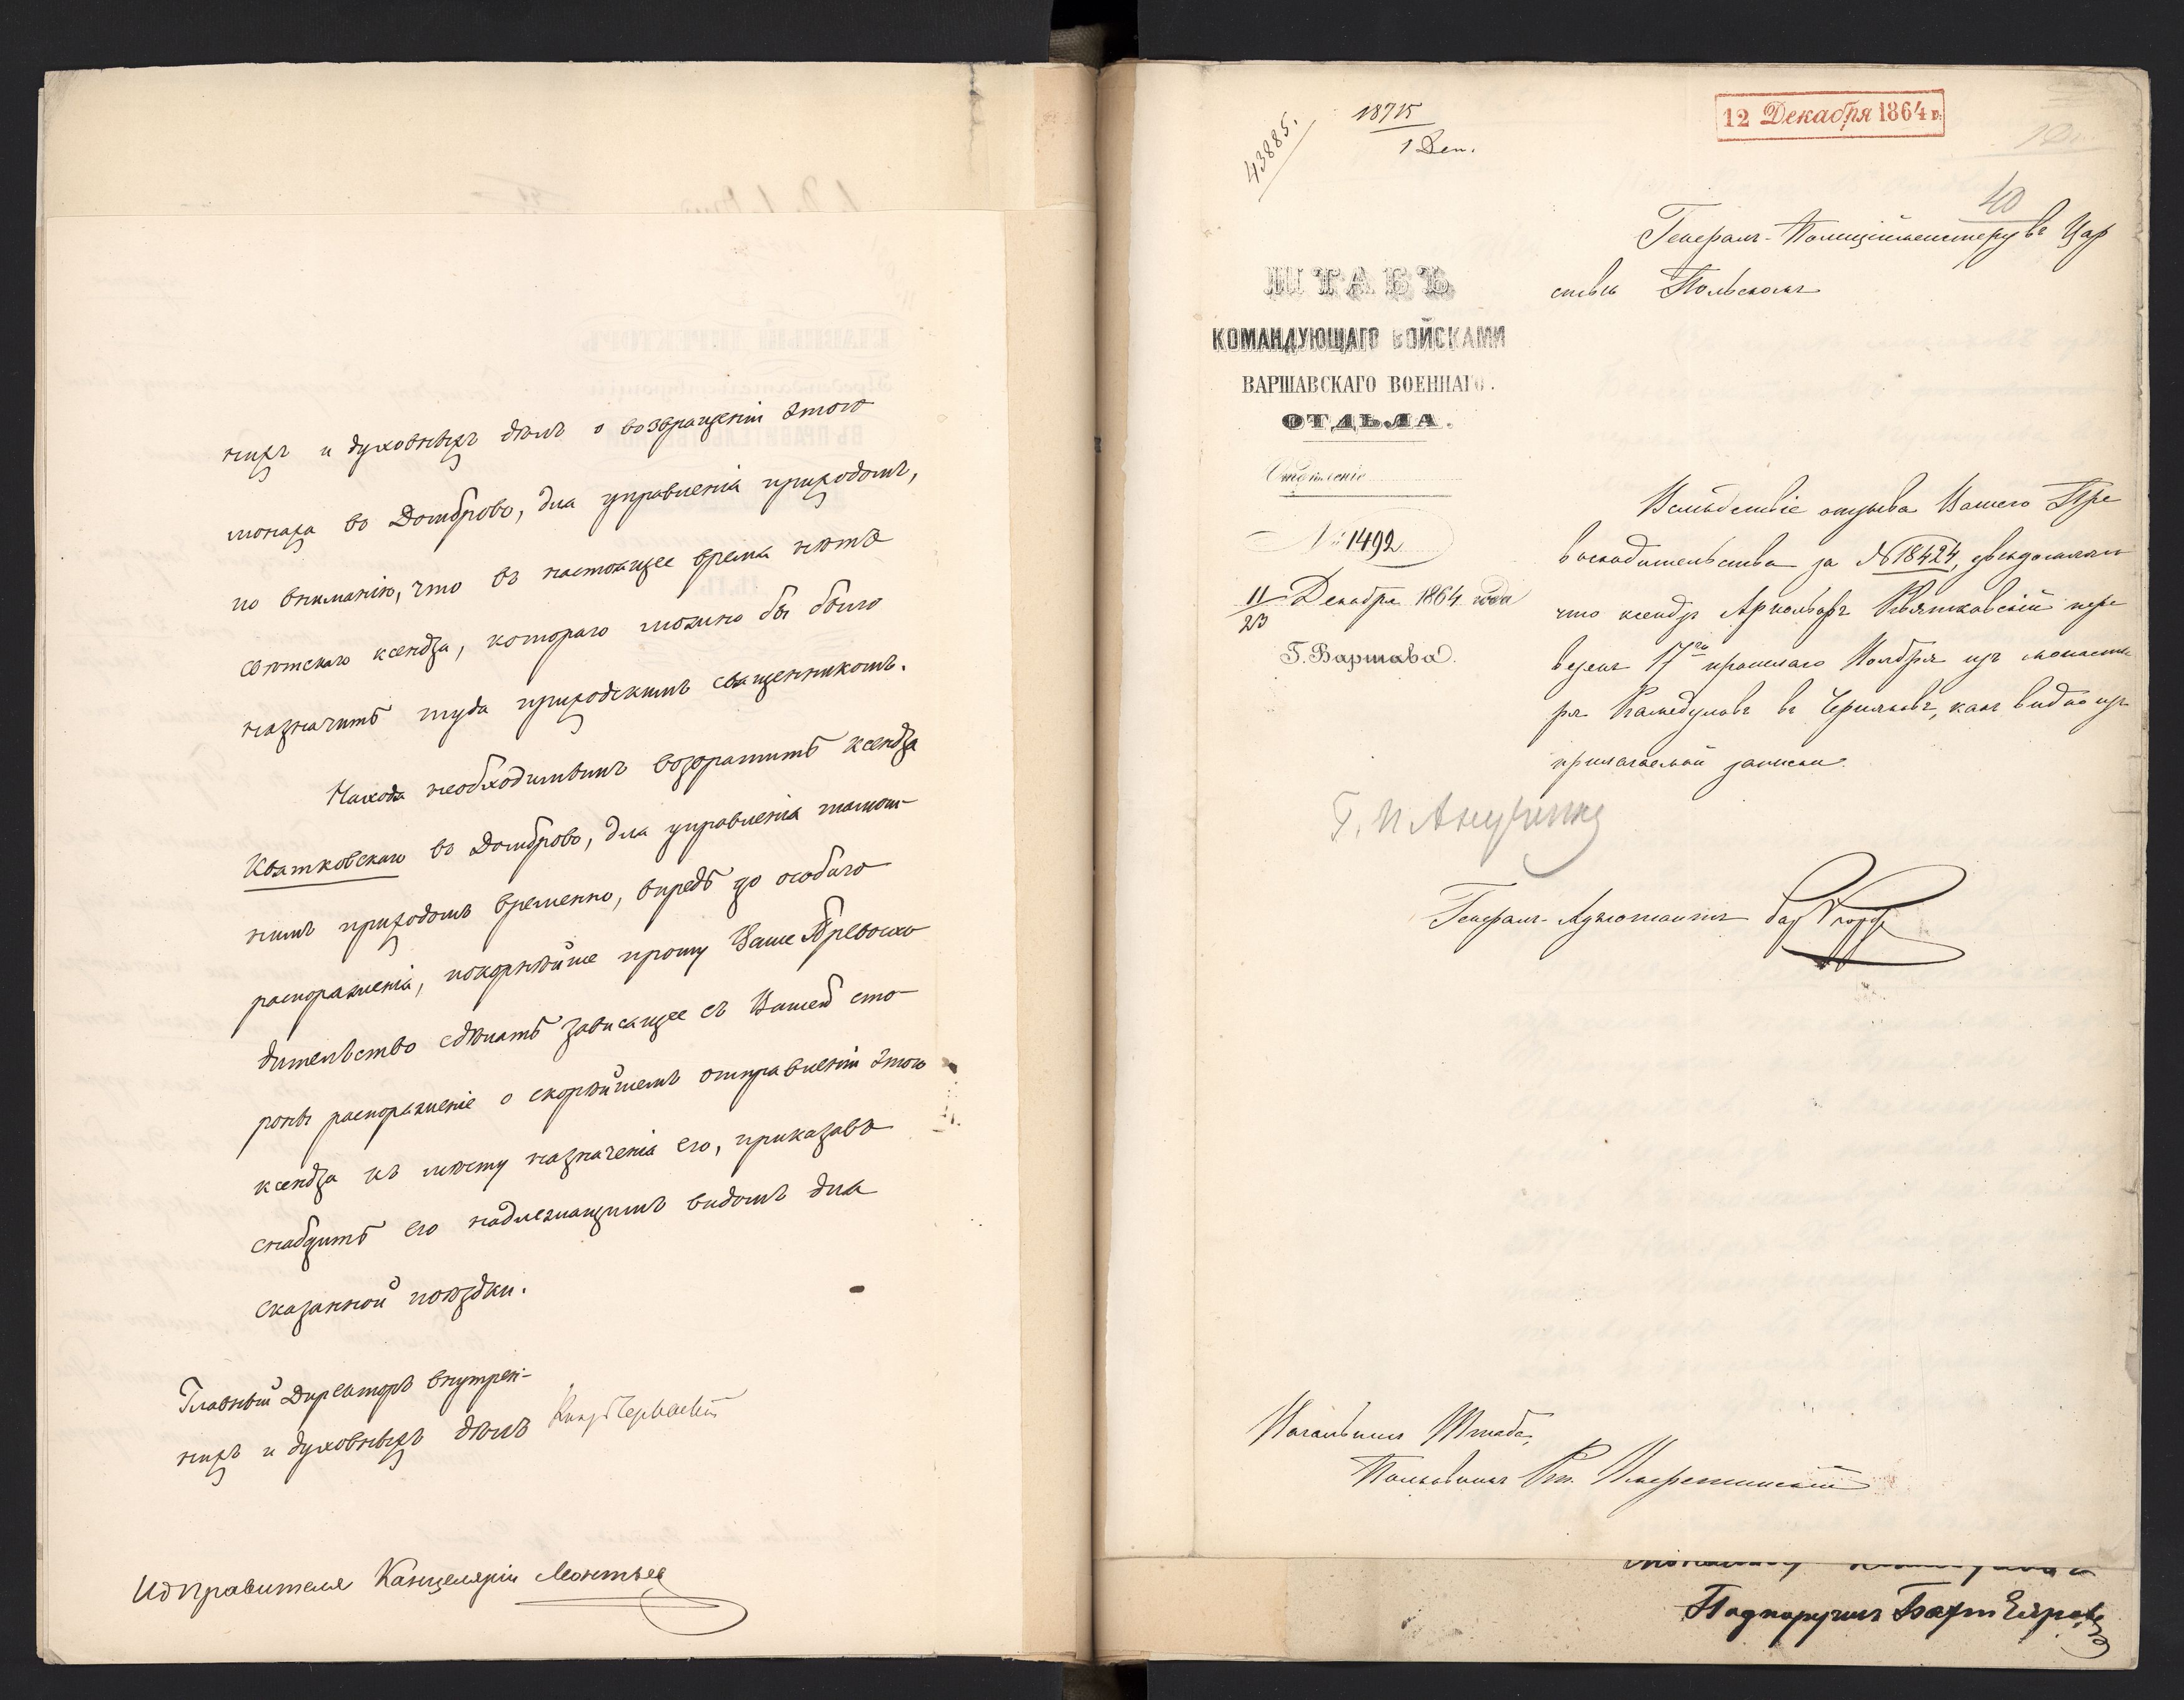 нихъ и духовныхъ дѣлъ о возвращеніи этого
монаха въ Домброво, для управленія приходомъ,
по вниманію, что въ настоящее время нѣтъ
свѣтскаго ксендза, котораго можно бы было
назначить туда приходскимъ священникомъ.
Находя необходимымъ возвратить ксендза
Квятковскаго въ Домброво, для управленія тамош-
нимъ приходомъ временно, впредь до особаго
распоряженія, покорнѣйше прошу Ваше Превосхо
дительство сдѣлать зависящее съ Вашей сто-
роны распоряженіе о скорѣйшемъ отправленіи этого
ксендза къ мѣсту назначенія его, приказавъ
снабдить его надлежащимъ видомъ для
сказанной поѣздки.
Главный Директоръ внутрен-
нихъ и духовныхъ дѣлъ Князь Черкасскій
Ид Правителя Канцеляріи Леонтьев
43885.
18715
1 Деп.
12 Декабря 1864 г.
40
Генералъ-Полицiймейстеру въ Цар
ствѣ Польскомъ
ШТАБЪ
КОМАНДУЮЩАГО ВОЙСКАМИ
ВАРШАВСКАГО ВОЕННАГО.
ОТДѢЛА.
Отдѣленіе
№ 1492
11/23 Декабря 1864 года
Г. Варшава.
Вслѣдствіе отзыва Вашего Пре
восходительства за № 18424, увѣдомляю
что ксендзъ Квятковскій пере
везенъ 17го прошлаго Ноября изъ монасты
ря Камедуловъ въ Черняковъ, какъ видно изъ
прилагаемой записки.
Г. П.
Генералъ-Адъютантъ бар Корфъ
Начальникъ Штаба,
Полковникъ Кн. Имеретинскій
Подпоручикъ